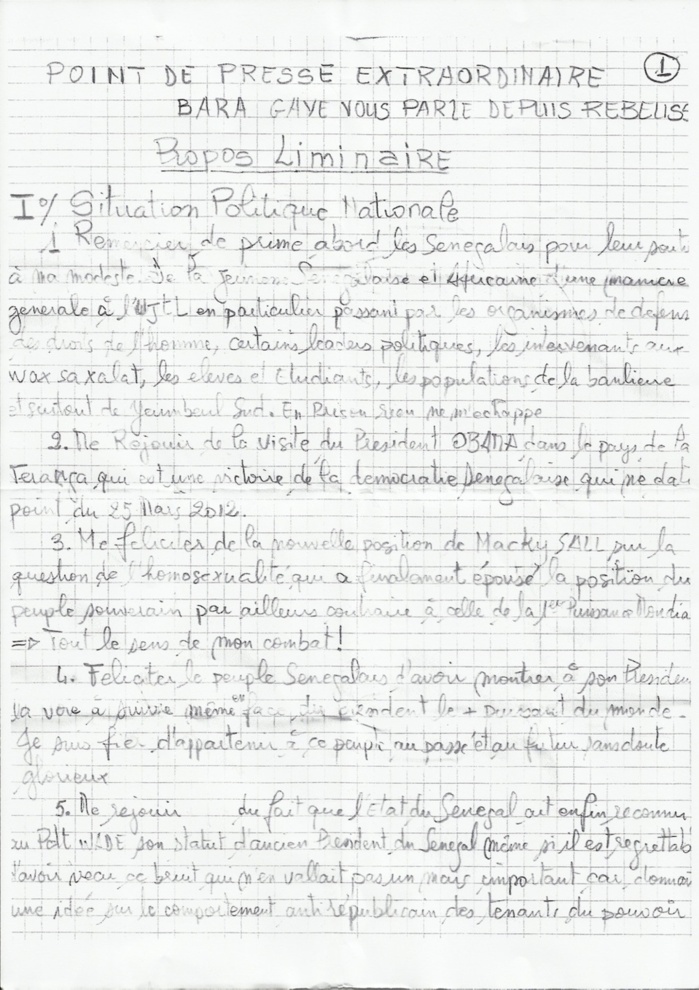 POINT DE PRESSE EXTRAORDINAIRE 1
BARA GAYE VOUS PARLE DEPUIS REBEUSS
Propos Liminaire
I°/ Situation Politique Nationale
1 Remercier de prime abord les Senegalais pour leur
à ma modeste de la Jeunesse Senegalaise et Africaine d'une maniere
generale à l'UJTL en particulier passant par les organismes de defens
des droits de l'homme, certains leaders politiques, les intervenants aux
wax sa xalat, les eleves et Etudiants, les populations de la banlieue
et surtout de Yeumbeul Sud. En Prison rien ne m'echappe
2. Me Rejouir de la visite du President OBAMA dans le pays de la
Teranga qui est une victoire de la democratie Senegalaise qui ne date
point du 25 Mars 2012.
3. Me feliciter de la nouvelle position de Macky SALL sur la
question de l'homosexualité qui a finalement épousé la position du
peuple souverain par ailleurs contraire à celle de la 1er Puissance Mondia
=> Tout le sens de mon combat!
4. Feliciter le peuple Senegalais d'avoir montrer à son Presiden
la voie à suivre même en face du President le + puissant du monde.
Je suis fier d'appartenir à ce peuple au passé et au futur sans doute
glorieux
5. Me rejouir du fait que l'Etat du Senegal ait enfin reconnu
au Pdt WADE son statut d'ancien President du Senegal même si il est regrettab
d'avoir ce bruit qui n'en vallait pas un mais important car donnai
une idée sur le comportement antirépublicain des tenants du pouvoir